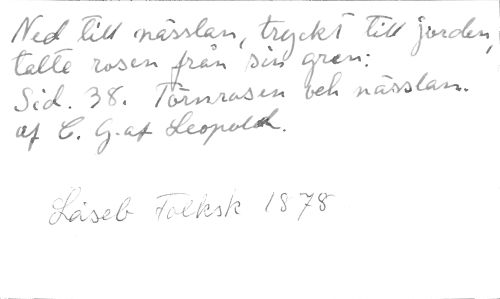 Ned till nässlan, tryckt till jorden,
talte rosen från sin gren:
Sid. 38. Törnrosen och nässlan.
af C. G. af Leopold.
Läseb Folksk 1878